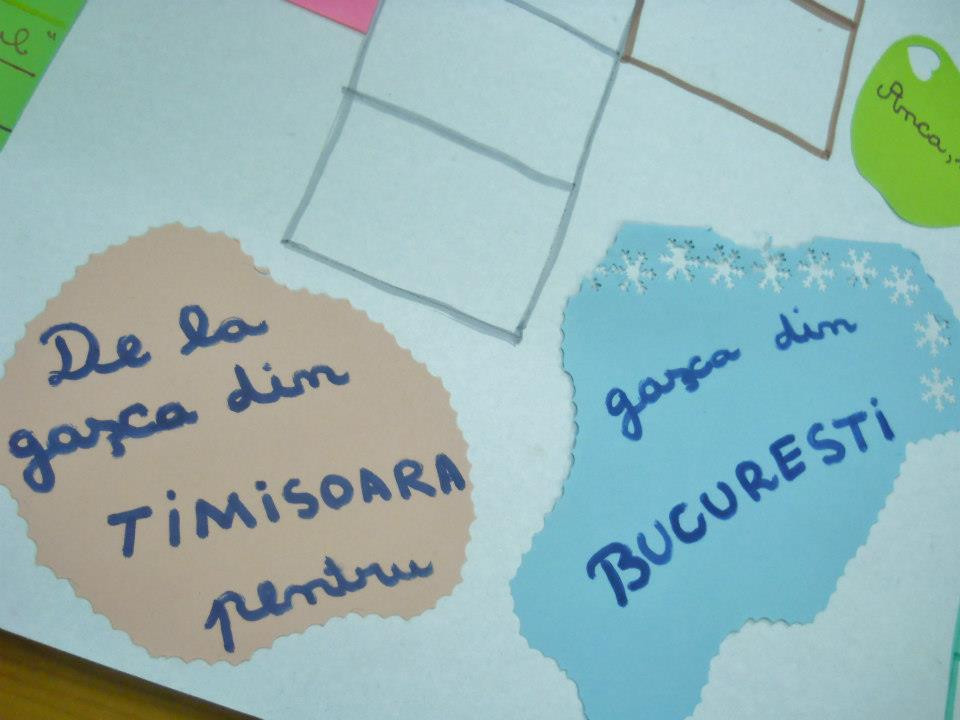 Anca,
De la
gașca din
TIMISOARA
pentru
gașca din
BUCURESTI